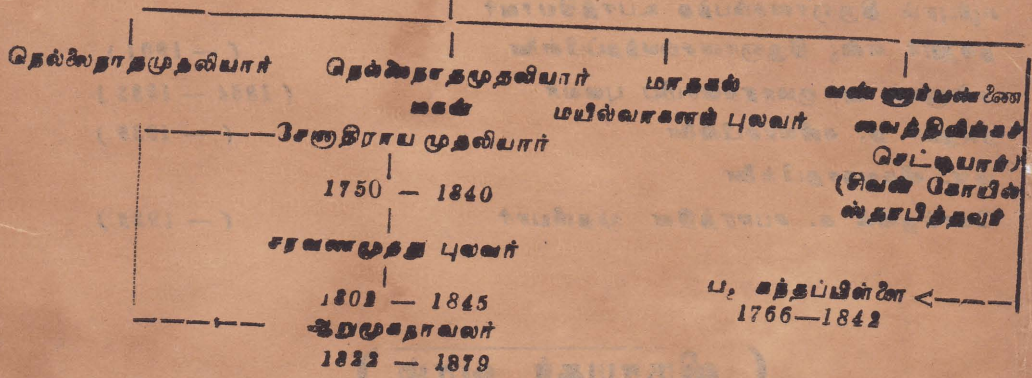 நெல்லைநாதமுதலியார்
நெல்லைநாதமுதலியார்
மகன்
சேனாதிராய முதலியார்
1750 — 1840
சரவணமுத்து புலவர்
1802 — 1845
ஆறுமுகநாவலர்
1822 — 1879
மாதகல்
மயில்வாகனம் புலவர்
வண்ணார்பண்ணை
வைத்திலிங்கச்
செட்டியார்)
(சிவன் கோயில்
ஸ்தாபித்தவர்
ப, கந்தப்பிள்ளை
1766—1842